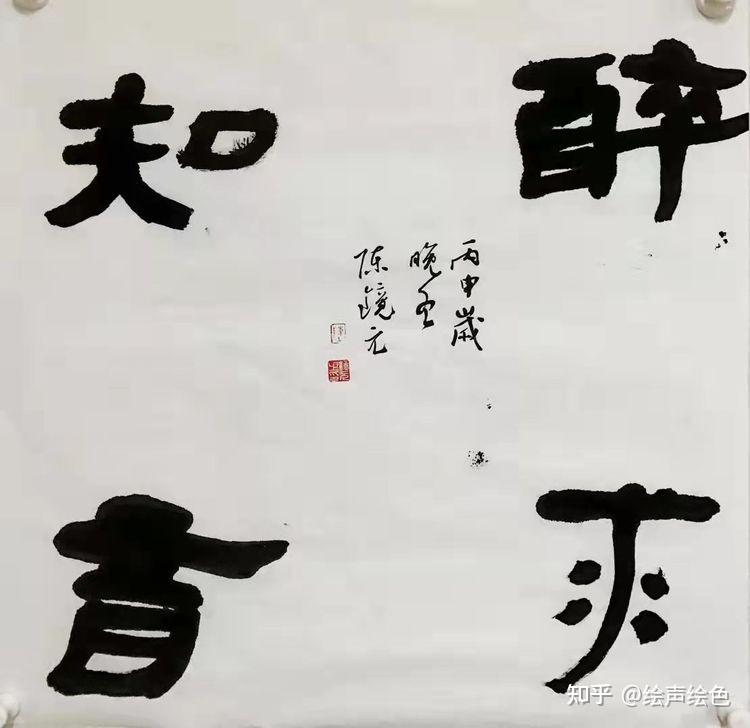 醉求
知音
丙申歲
晚
陈镜元
知乎 @绘声绘色